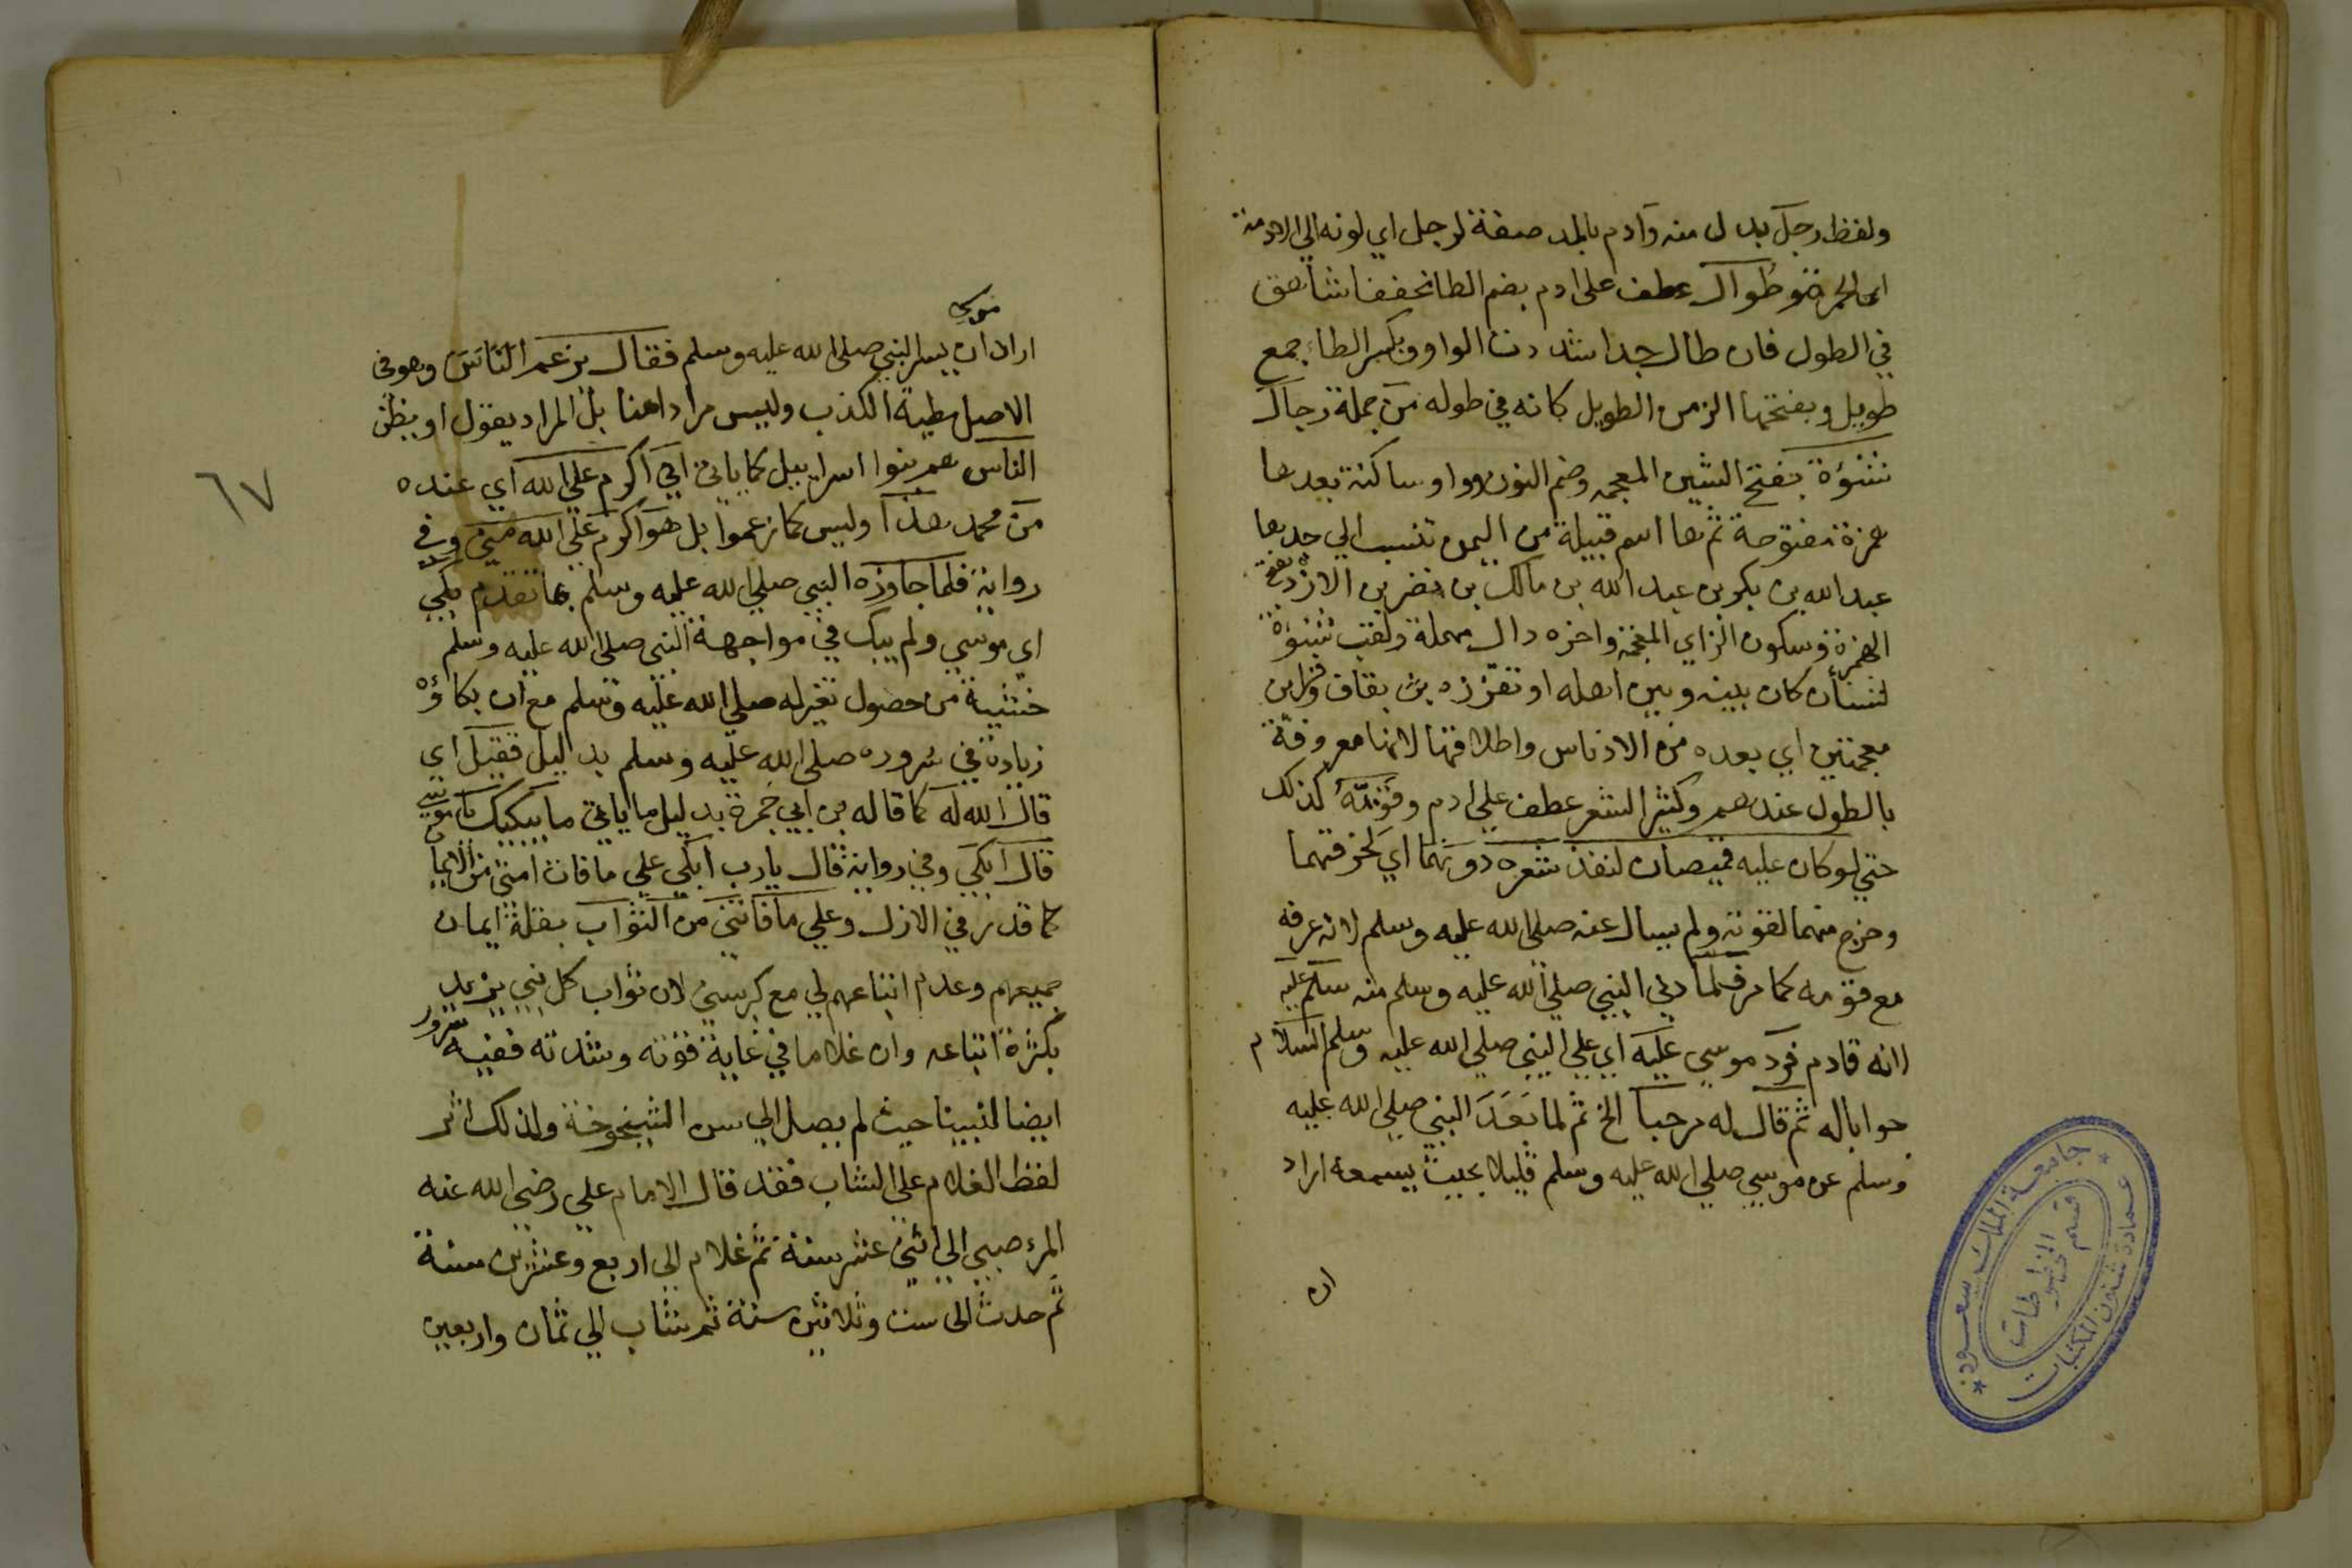 ولفظ رجل بدل منه وآدم بالمد صفة لرجل اي لونه الي الادمة
اي الحمرة وطوال عطف على ادم بضم الطا مخففا شاهق
في الطول فان طال جدا شددت الواو وبكسر الطاء جمع
طويل وبفتحها الزمن الطويل كانه في طوله من جملة رجال
شنؤة بفتح الشين المعجمه وضم النون وواو ساكنة بعدها
همزة مفتوحة ثم ها اسم قبيلة من اليمن تنسب الي جدها
عبد الله بن بكر بن عبد الله بن مالك بن نضر بن الازد بفتح
الهمزة وسكون الزاي المعجمة واخره دال مهملة ولقب شنؤة
لشنأن كان بينه وبين اهله او تقززه بقاف وزاين
معجمتين اي بعده من الادناس واطلاقها لانها معروفة
بالطول عندهم وكثير الشعر عطف علي ادم وقوته كذلك
حتي لو كان عليه قميصان لنفذ شعره دونهما اي لخرقهما
وخرج منهما لقوته ولم يسال عنه صلي الله عليه وسلم لانه عرفه
مع قومه كما مر فلما دني النبي صلي الله عليه وسلم منه سلم عليه
لانه قادم فرد موسي عليه اي علي النبي صلي الله عليه وسلم السلام
جوابا له ثم قال له مرحبا الخ ثم لما بعد النبي صلي الله عليه
وسلم عن موسي صلي الله عليه وسلم قليلا بحيث يسمعه اراد
ان
جامعة الملك سعود
عمادة شئون المكتبات
قسم المخطوطات
٦٧
موسي
اراد ان يسر النبي صلى الله عليه وسلم فقال يزعم الناس وهو في
الاصل مطية الكذب وليس مرادا هنا بل المراد يقول او يظن
الناس هم بنوا اسراييل كما ياتي اني اكرم علي الله اي عنده
من محمد هذا وليس كما زعموا بل هو اكرم علي الله مني وفي
رواية فلما جاوزه النبي صلي الله عليه وسلم بما تقدم بكي
اي موسي ولم يبك في مواجهة النبي صلى الله عليه وسلم
خشية من حصول تغير له صلي الله عليه وسلم مع ان بكاؤه
زيادة في سروره صلى الله عليه وسلم بدليل فقيل اي
قال الله له كما قاله بن ابي جمرة بدليل ما ياتي ما يبكيك يا موسي
قال ابكي وفي رواية قال يارب ابكي علي ما فات امتي من الايمان
كما قدر في الازل وعلي ما فاتني من الثواب بقلة ايمان
جميعهم وعدم اتباعهم لي مع كبر سني لان ثواب كل نبي يزيد
بكثرة اتباعه وان غلاما في غاية قوته وشدته ففيه سرور
ايضا لنبينا حيث لم يصل الي سن الشيخوخة ولذلك اثر
لفظ الغلام على الشاب فقد قال الامام علي رضي الله عنه
المرء صبي الي اثني عشر سنة ثم غلام الي اربع وعشرين سنة
ثم حدث الى ست وثلاثين سنة ثم شاب الي ثمان واربعين